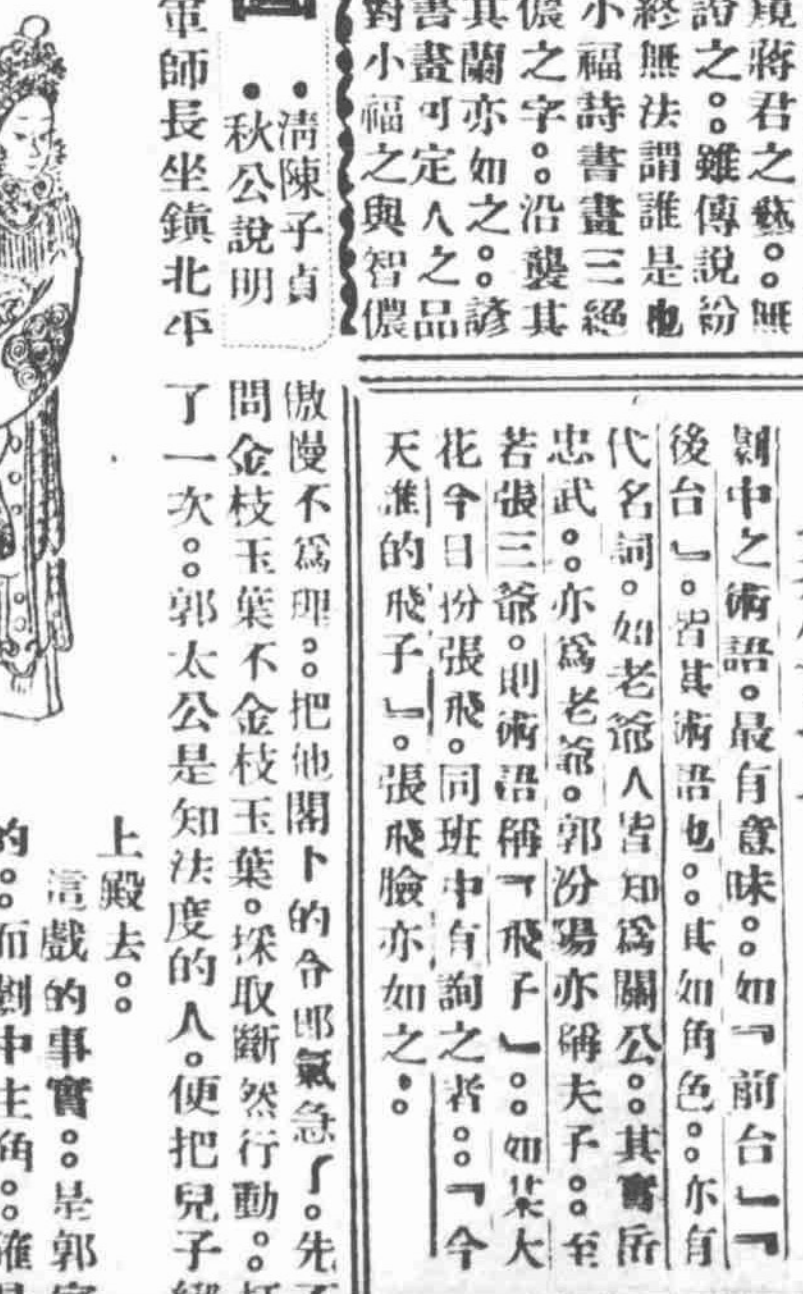 境蔣君之藝。。無
證之。。雖傳說紛
終無法謂誰是也
小福詩書畫三絕
儂之字。。沿襲其
其蘭亦如之。。諺
書畫可定人之品
對小福之與智儂
劇中之術語。最有意味。。如『前台』『
後台』。皆其術語也。。其如角色。。亦有
代名詞。如老爺人皆知爲關公。。其實岳
忠武。。亦爲老爺。郭汾陽亦稱夫子。。至
若張三爺。則術語稱『飛子』。。如某大
花今日份張飛。同班中有詢之者。。『今
天誰的飛子』。張飛臉亦如之。。
圖
・清陳子貞
・秋公說明
軍師長坐鎮北平
傲慢不爲理。。把他閣下的令郎氣急了。先
問金枝玉葉不金枝玉葉。採取斷然行動。。
了一次。。郭太公是知法度的人。便把兒子綁
上殿去。。
這戲的事實。。是郭
的。。而劇中主角。。確